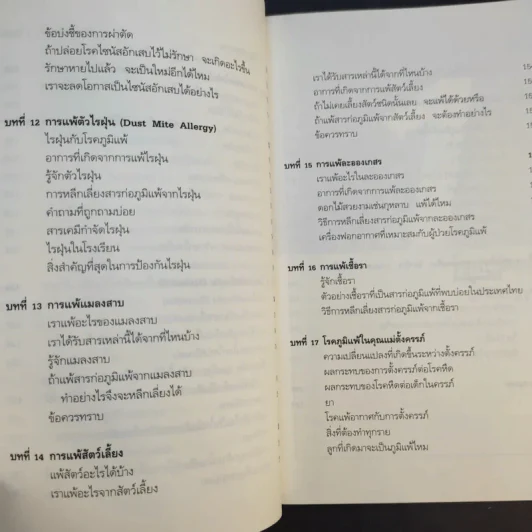 ข้อบ่งชี้ของการผ่าตัด
ถ้าปล่อยโรคไซนัสอักเสบไว้ไม่รักษา จะเกิดอะไรขึ้น
รักษาหายไปแล้ว จะเป็นใหม่อีกได้ไหม
เราจะลดโอกาสเป็นไซนัสอักเสบได้อย่างไร
บทที่ 12 การแพ้ตัวไรฝุ่น (Dust Mite Allergy)
ไรฝุ่นกับโรคภูมิแพ้
อาการที่เกิดจากการแพ้ไรฝุ่น
รู้จักตัวไรฝุ่น
การหลีกเลี่ยงสารก่อภูมิแพ้จากไรฝุ่น
คำถามที่ถูกถามบ่อย
สารเคมีกำจัดไรฝุ่น
ไรฝุ่นในโรงเรียน
สิ่งสำคัญที่สุดในการป้องกันไรฝุ่น
บทที่ 13 การแพ้แมลงสาบ
เราแพ้อะไรของแมลงสาบ
เราได้รับสารเหล่านี้ได้จากที่ไหนบ้าง
รู้จักแมลงสาบ
ถ้าแพ้สารก่อภูมิแพ้จากแมลงสาบ
ทำอย่างไรจึงจะหลีกเลี่ยงได้
ข้อควรทราบ
บทที่ 14 การแพ้สัตว์เลี้ยง
แพ้สัตว์อะไรได้บ้าง
เราแพ้อะไรจากสัตว์เลี้ยง
เราได้รับสารเหล่านี้ได้จากที่ไหนบ้าง
อาการที่เกิดจากการแพ้สัตว์เลี้ยง
ถ้าไม่เคยเลี้ยงสัตว์ชนิดนั้นเลย จะแพ้ได้ด้วยหรือ
ถ้าแพ้สารก่อภูมิแพ้จากสัตว์เลี้ยง จะต้องทำอย่างไร
ข้อควรทราบ
บทที่ 15 การแพ้ละอองเกสร
เราแพ้อะไรในละอองเกสร
อาการที่เกิดจากการแพ้ละอองเกสร
ดอกไม้สวยงามเช่นกุหลาบ แพ้ได้ไหม
วิธีการหลีกเลี่ยงสารก่อภูมิแพ้จากละอองเกสร
เครื่องฟอกอากาศที่เหมาะสมกับผู้ป่วยโรคภูมิแพ้
บทที่ 16 การแพ้เชื้อรา
รู้จักเชื้อรา
ตัวอย่างเชื้อราที่เป็นสารก่อภูมิแพ้ที่พบบ่อยในประเทศไทย
วิธีการหลีกเลี่ยงสารก่อภูมิแพ้จากเชื้อรา
บทที่ 17 โรคภูมิแพ้ในคุณแม่ตั้งครรภ์
ความเปลี่ยนแปลงที่เกิดขึ้นระหว่างตั้งครรภ์
ผลกระทบของการตั้งครรภ์ต่อโรคหืด
ผลกระทบของโรคหืดต่อเด็กในครรภ์
ยา
โรคแพ้อากาศกับการตั้งครรภ์
สิ่งที่ต้องทำทุกราย
ลูกที่เกิดมาจะเป็นภูมิแพ้ไหม